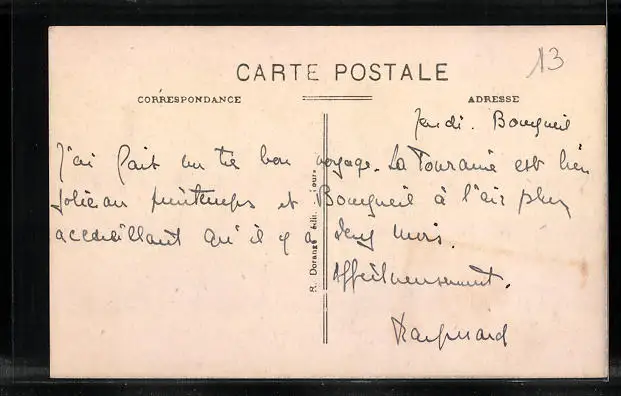 13
CARTE POSTALE
CORRESPONDANCE
ADRESSE
Jeudi. Bourgueil
J'ai fait un tres bon voyage. La Touraine est bien
jolie au printemps et Bourgueil à l'air plus
accueillant qu'il y a deux mois.
Affectueusement.
R. Dorange édit. Tours